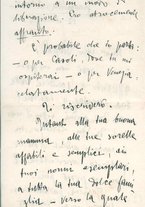 intorno a un modo di
liberazione. Sto atrocemente
affranto.
È probabile che io parta
– o per Casoli, dove tu mi
ospiterai – o per Venezia.
certamente.
Ti riscriverò.
Intanto alla tua buona
mamma, alle tue sorelle
affabili e semplici, ai
tuoi uomini esemplari,
a tutta la tua dolce fami-
glia – verso la quale